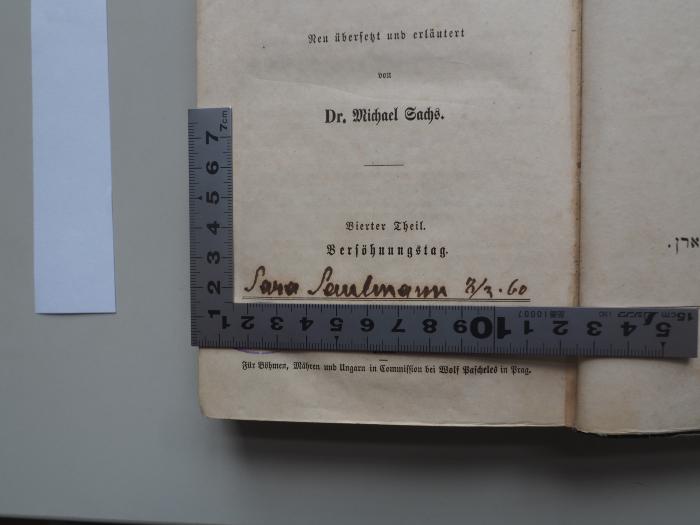 Neu übersetzt und erläutert
von
Dr. Michael Sachs.
Vierter Theil.
Versöhnungstag.
Sara Saulmann 60
Für Böhmen, Mähren und Ungarn in Commission bei Wolf Pascheles in Prag.
ארן.
7cm
7
6
5
4
3
2
1
1 2 3 4 5 6 7 8 9 10 11 2 3 4 5
15cm